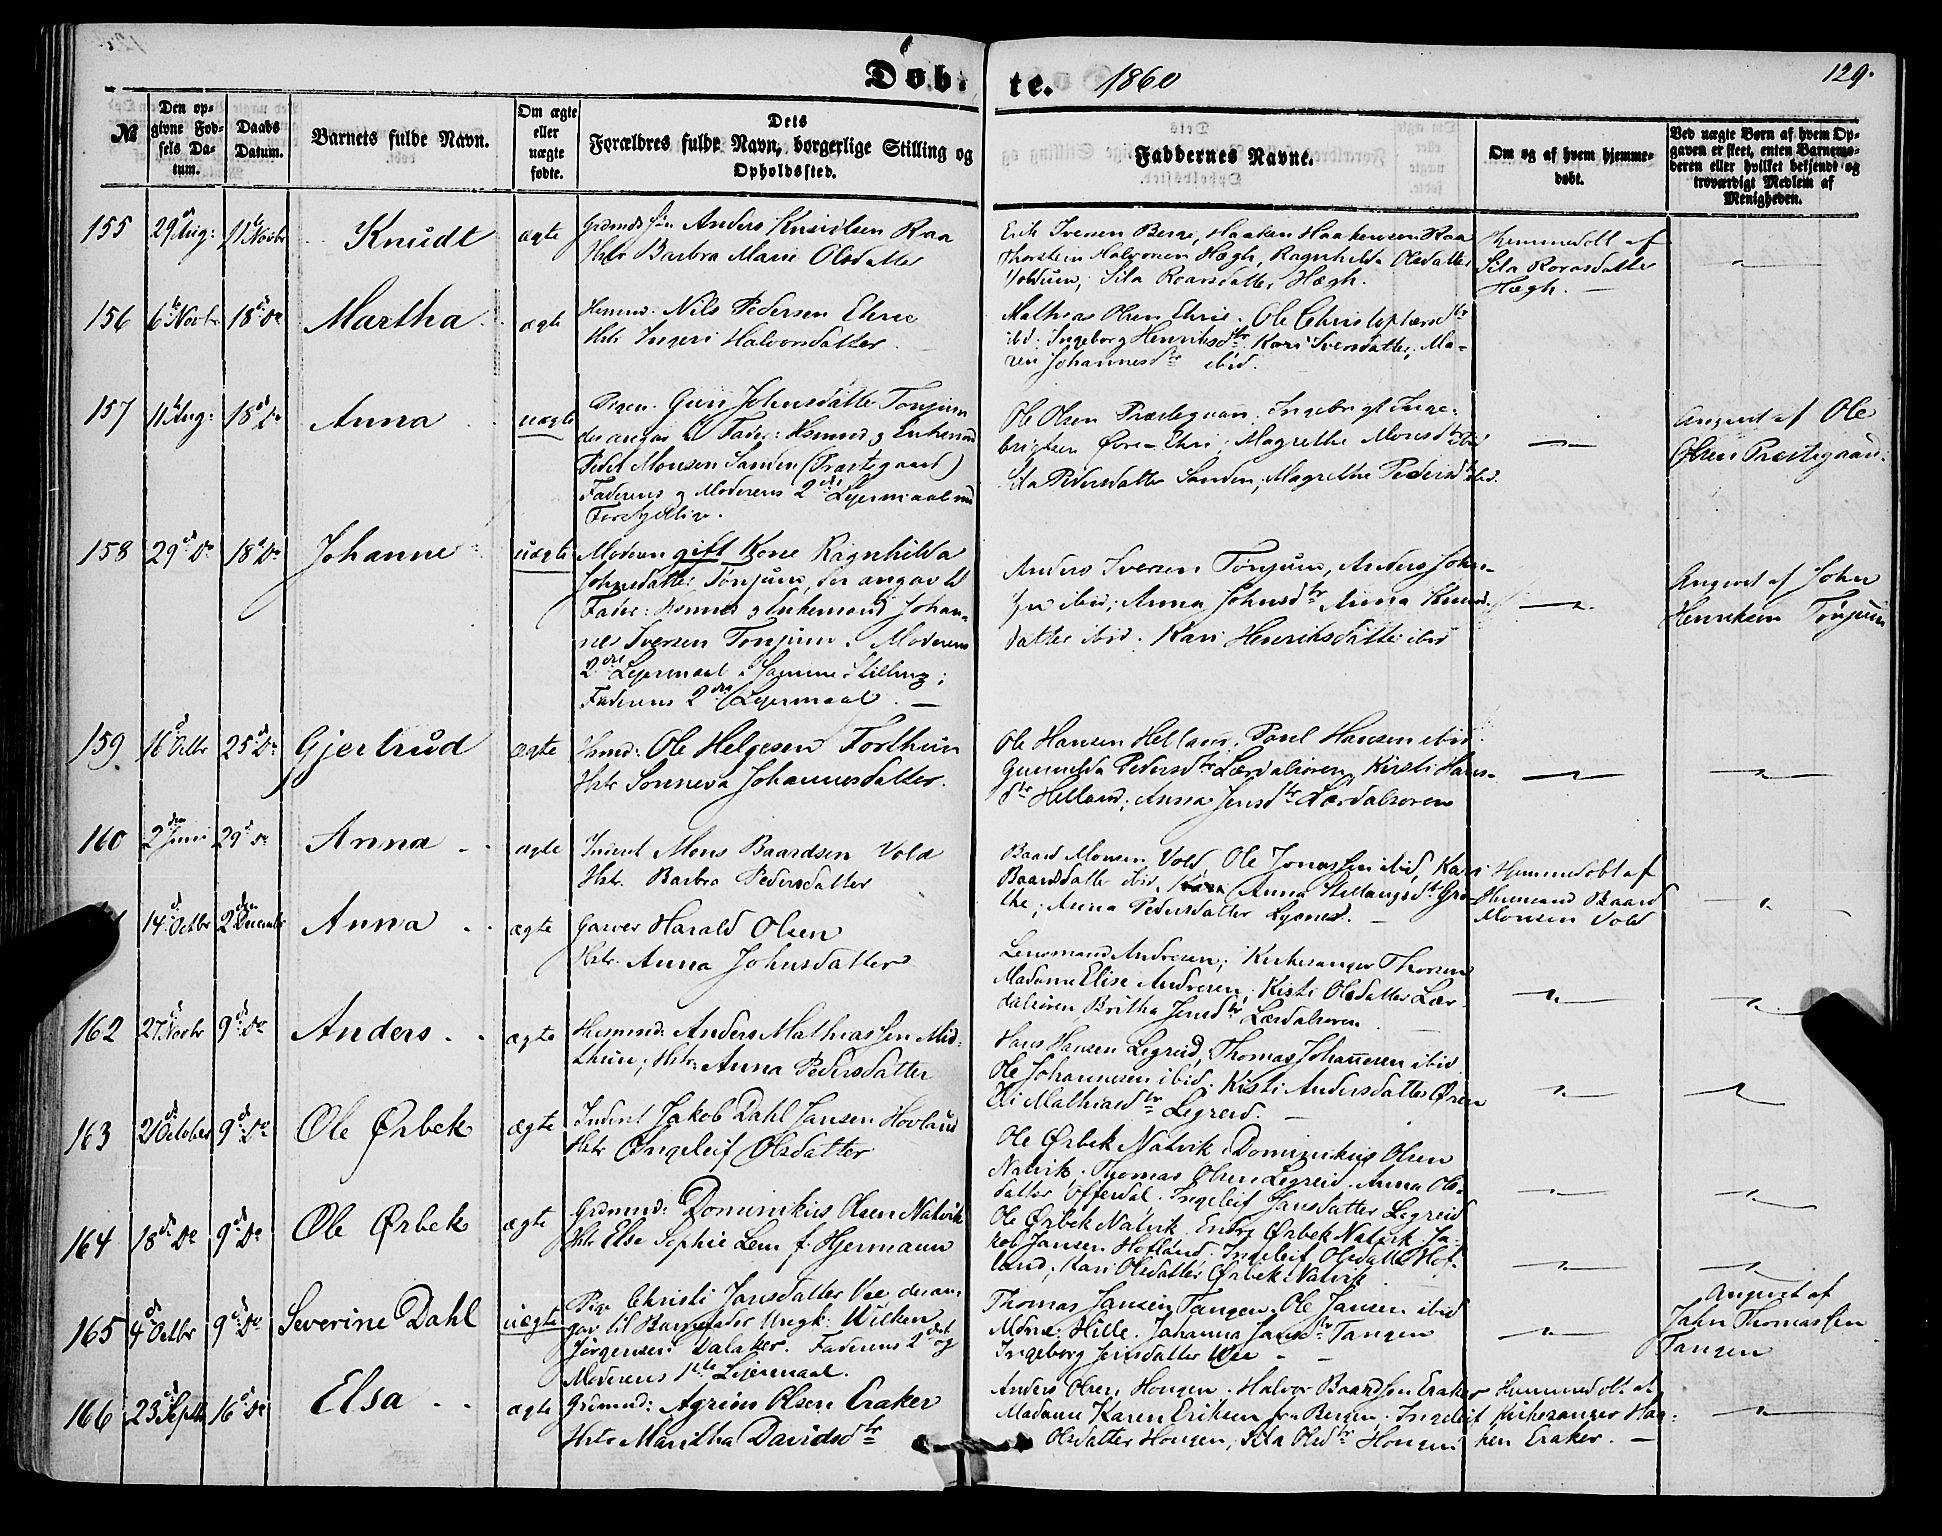 Døbte. 1860
129.
№
Den opgivne Fødsels Datum.
Daabs Datum.
Barnets fulde Navn.
Om ægte eller uægte fødte.
Dets Forældres fulde Navn, borgerlige Stilling og Opholdssted.
Faddernes Navne.
Om og af hvem hjemmedøbt.
Ved uægte Børn af hvem Opgaven er skeet, enten Barnemoderen eller hvilket bekjendt og troværdigt Medlem af Menigheden.
155 29 Aug: 11 Novbr Knudt ægte
Anders Knudsen Raa
Hstr Barbra Marie Olsdatter
Erik Iversen Berge, Haaken Haakensen Raa
Thorstein Halvorsen Hægh, Ragnhilda Olsdatter
Voldum; Sila Roarsdatter Hægh.
Hjemmedøbt af
Sila Roarsdatter
Hægh.
156 6 Novbr 18 Do Martha ægte
Nils Pedersen Ehrie
Hstr Ingeri Halvorsdatter.
Mathias Olsen Ehrie. Ole Christophers
ibid: Ingeborg Henriksdtr Kari Iversdatter, Ma-
ren Johannesdtr ibid.
157 11 Aug: 18 Do Anna uægte
Pigen Guri Johnsdatter Tønjum
der angav til Fader: Husmand og Enkemand
Peder Monsen Sanden (Præstegaard)
Faderens og Moderens 2det Leiermaal
Ole Olsen Præstegaard. Ingebrigt Inge-
brigtsen Øvre-Ehri, Magrethe Monsdtr ibid
Sila Pedersdatter Sanden, Magrethe Pedersd ibid.
Angivet af Ole
Olsen Præstegaard.
158 29 Do 18 Do Johanne uægte
Moderen gift Kone Ragnhilda
Johnsdatter Tønjum, der angav til
Fader: Husmand og Enkemand Johan-
nes Iversen Tønjum. Moderens
2det Leiermaal i samme Stilling;
Faderens 2det Leiermaal.
Anders Iversen Tønjum, Anders John-
sen ibid; Anna Johnsdtr Anna Knuds-
datter ibid. Kari Henriksdatter ibid
Angivet af John
Henriksen Tønjum
159. 16 Octbr 25 Do Gjertrud ægte
Husmd: Ole Helgesen Forthun
Hstr Sonneva Johannesdatter.
Ole Hansen Helland, Poul Hansen ibid
Gunnilda Pedersdtr Lærdalsøren, Kirsti Hans-
dtr Helland; Anna Jensdtr Lærdalsøren
160 2 Juni 29 Do Anna ægte
Inderst Mons Baardsen Vold
Hstr. Barbra Pedersdatter
Baard Monsen Vold Ole Jonassen ibid, Kari
Baardsdatter ibid, Anna
the; Anna Pedersdatter Lysnes.
Hjemmedøbt af
Husmand Baard
Monsen Vold
14 Octbr 2den December Anna ægte
Garver Harald Olsen
Hstr. Anna Johnsdatter
Lensmand Andresen; Kirkesanger Thorsen
Madame Elise Andresen; Kisti Olsdatter Lær-
dalsøren Britha Jensdtr Lærdalsøren
162 27 Novbr 9 Do Anders ægte
Husmnd: Anders Mathiassen Mid-
thun, Hstr: Anna Pedersdatter
Hans Hansen Legreid, Thomas Johannesen ibid
Ole Johannesen ibid; Kisti Andersdatter Øren
Eli Mathiasdtr Legreid.
163 2 October 9 Do Ole Ørbek ægte
Inderst Jakob Dahl Jansen Hovland
Hstr Ingeleif Olsdatter
Ole Ørbek Natvik, Dominikus Olsen
Natvik. Thomas Olsen Legreid. Anna Ols-
datter Offerdal. Ingeleif Jansdatter Legreid
164 18 Do 9 Do Ole Ørbek ægte
Grdmnd: Dominikus Olsen Natvik
Hstr Else Sophie Lem f. Hjermann
Ole Ørbek Natvik, Endre Ørbek Natvik, Ja-
kob Jansen Hofland. Ingeleif Olsdatter Hof-
land; Kari Olsdatter Ørbek Natvik
165 4 Octbr 9 Do Severine Dahl uægte
Pige Christi Jansdatter Vee der an-
gav til Barnefader Ungk: Wilken
Jørgensen Dalaker. Faderens 2det og
Moderens 1ste Leiermaal.
Thomas Jansen Tangen, Ole Jansen ibid
Mdme: Hille. Johanna Jansdtr Tangen
Ingeborg Jensdatter Wee
Angivet af
Jahn Thomassen
Tangen
166 23 Septbr 16 Do Elsa ægte
Grdmnd: Agrim Olsen Eraker
Hstr Maritha Davidsdtr
Anders Olsen Hougen. Halvor Baardsen Eraker
Madame Karen Eriksen fra Bergen. Ingeleif
Olsdatter Hougen, Sila Olsdtr Hougen
Hjemmedøbt af
Kirkesanger Haa-
ken Eraker.